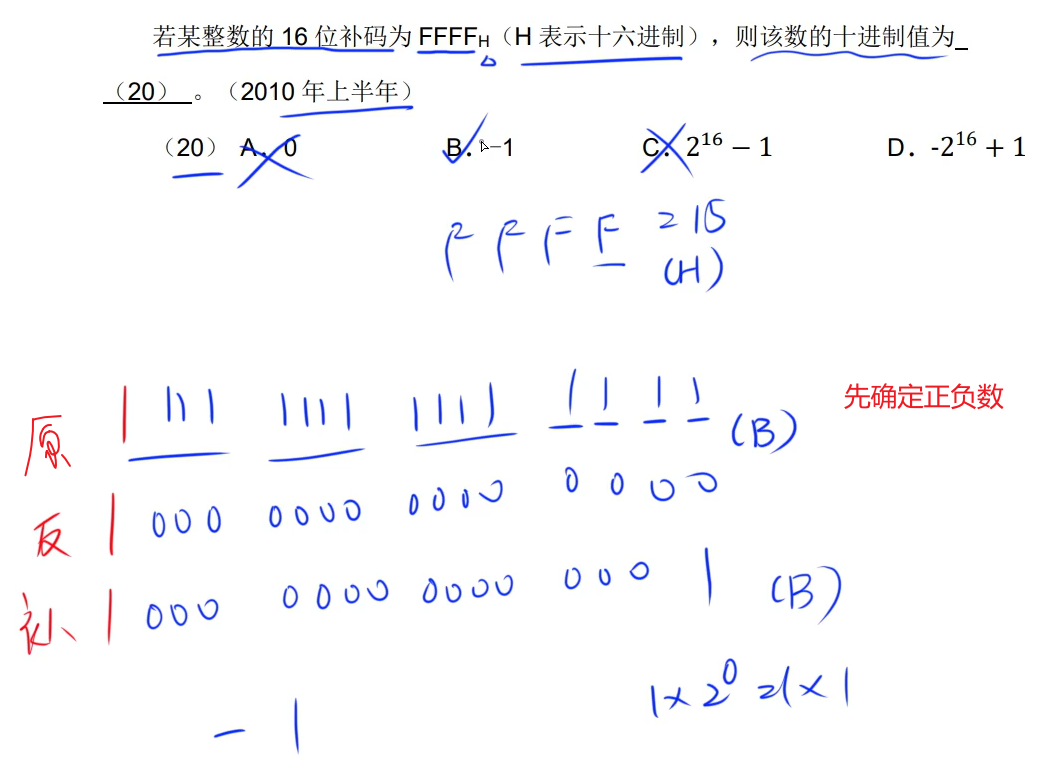 若某整数的 16 位补码为 FFFFH（H 表示十六进制），则该数的十进制值为_
（20） 。（2010 年上半年）
（20） A、0 B．-1 C．2¹⁶ − 1 D．-2¹⁶ + 1
F F F F =15
(H)
先确定正负数
原 1 111 1111 1111 1111 (B)
反 1 000 0000 0000 0000
补 1 000 0000 0000 000 1 (B)
1×2⁰=1×1
- 1